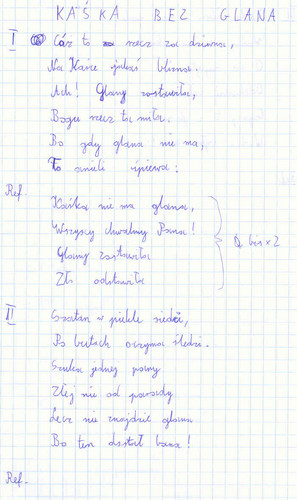 KAŚKA BEZ GLANA
I Cóż to za rzecz za dziwna,
Na Kaśce jakaś blizna.
Ach! Glany zostawiła,
Bogu rzecz ta miła.
Bo gdy glana nie ma,
To anieli śpiewa:
Ref.
Kaśka nie ma glana,
Wszyscy chwalmy Pana!
Glany zostawiła
Zło odstawiła
bis x 2
II Szatan w piekle siedzi,
Po butach oczyma śledzi.
Szuka jednej pary
Złej nie od parady
Lecz nie znajdzie glana
Bo ten dostał bana!
Ref.